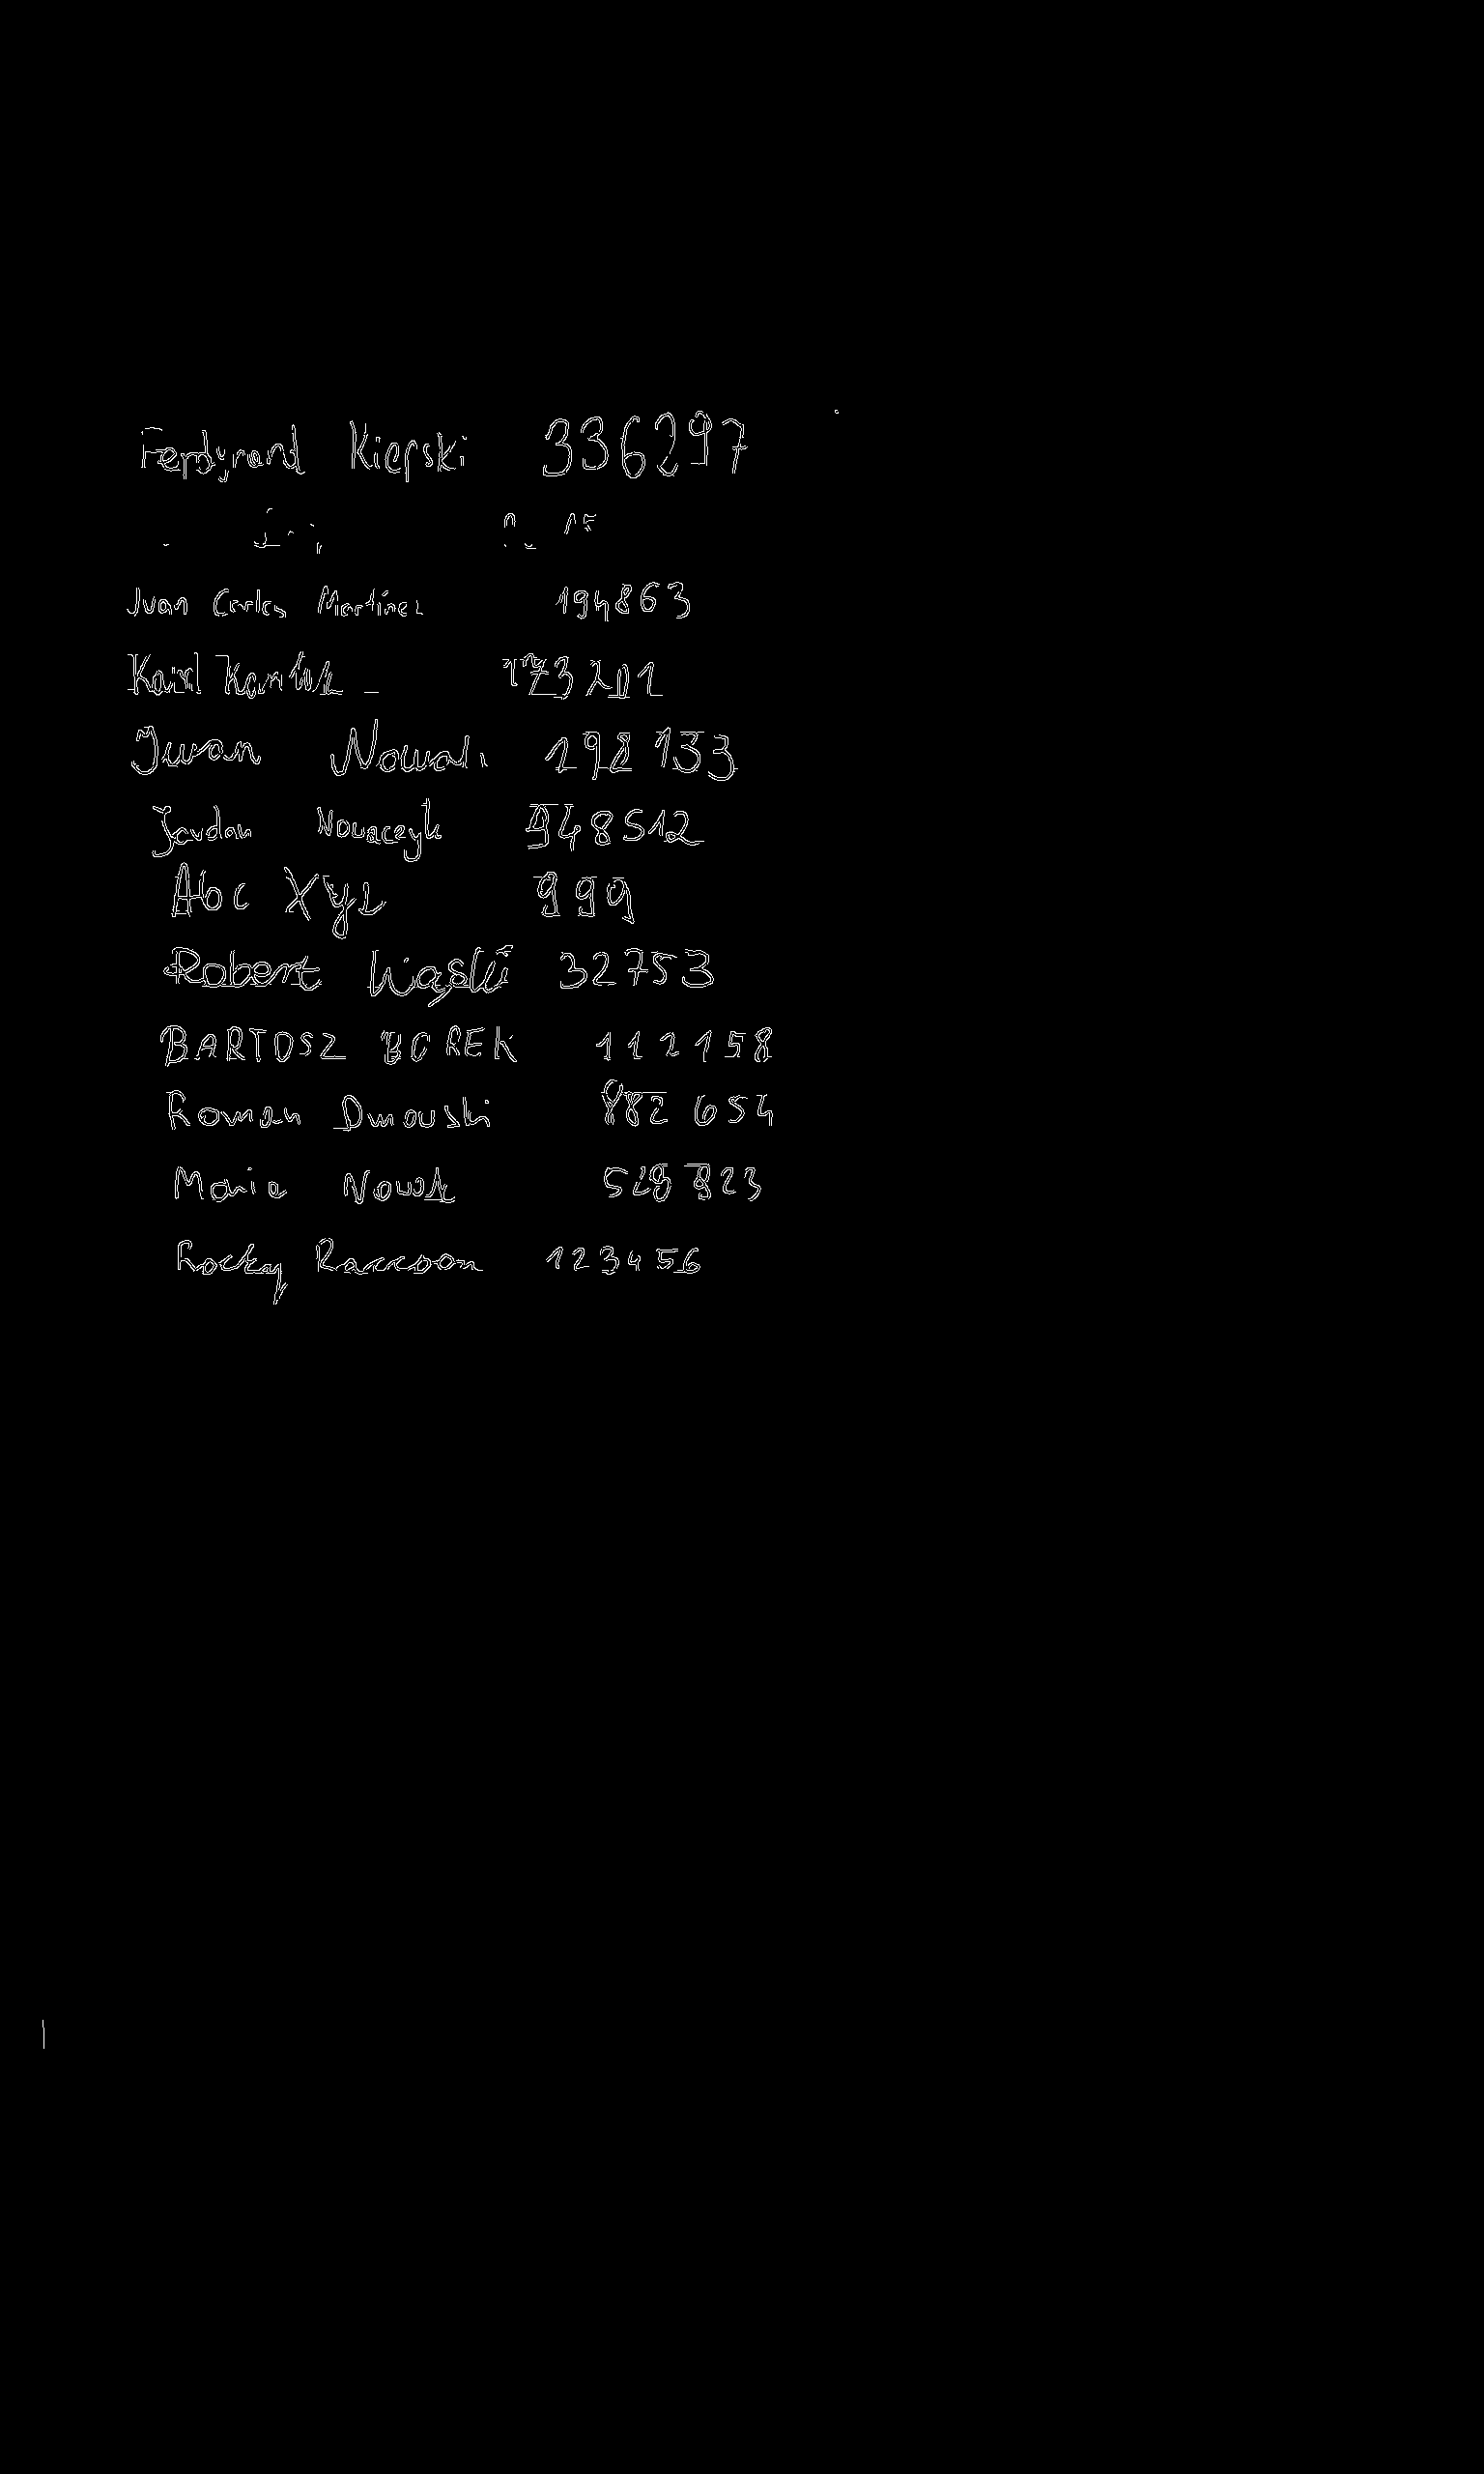 Ferdynand Kiepski 336297
Juan Carlos Martinez 194863
Karol 73201
Iwan Nowak 198133
Jordan Nowaczyk 948512
Abc Xyz 999
Robert Wąski 32753
BARTOSZ BOREK 112158
Roman Dmowski 882 654
Maria Nowak 528823
Rocky Raccoon 123456